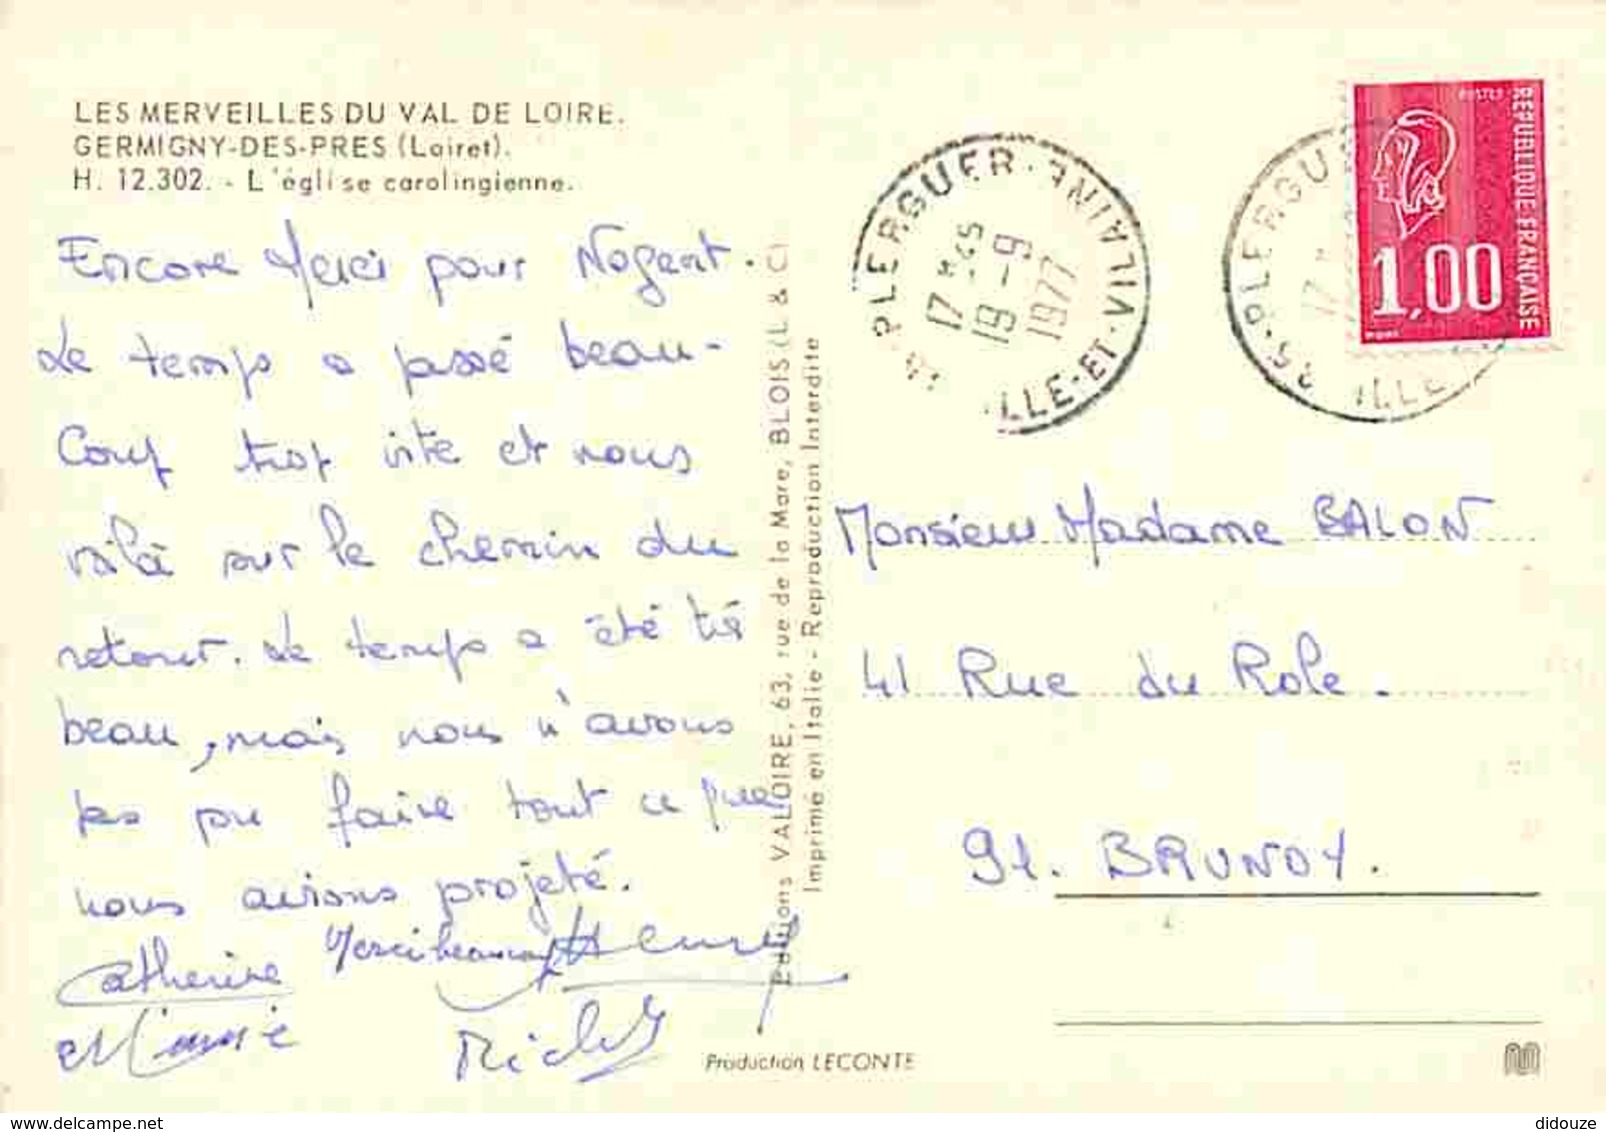 LES MERVEILLES DU VAL DE LOIRE.
GERMIGNY-DES-PRES (Loiret).
H. 12.302. - L'église carolingienne.
Encore Merci pour Nogent.
Le temps a passé beau-
coup trop vite et nous
voilà sur le chemin du
retour. Le temps a été très
beau, mais nous n'avons
pas pu faire tout ce que
nous avions projeté.
Catherine Merci beaucoup
Editions VALOIRE, 63, rue de la Mare, BLOIS (L. & C)
Imprimé en Italie - Reproduction Interdite
Production LECONTE
PLERGUER. ILLE-ET-VILAINE
17 H 45
19 - 9
1977
35. PLERGU
17 H
ILLE
POSTES
REPUBLIQUE FRANÇAISE
1,00
Monsieur Madame BALON
41 Rue du Role.
91. BRUNOY.
didouze